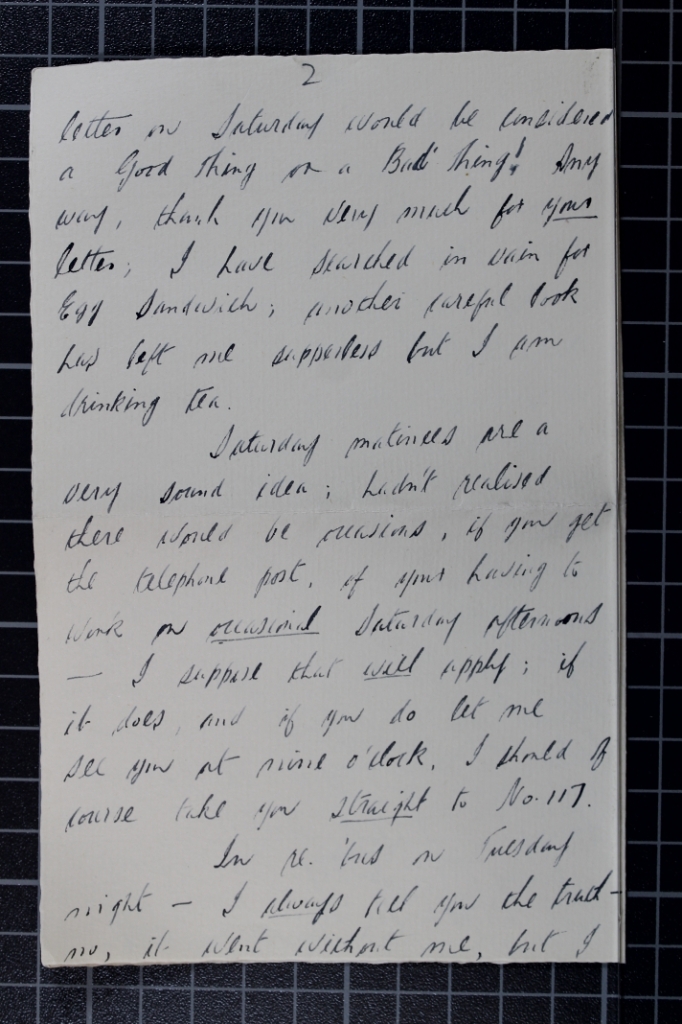 2
letter on Saturday would be considered
a Good thing or a Bad thing! Any
way, thank you very much for your
letter; I have searched in vain for
Egg Sandwich; another careful look
has left me supperless but I am
drinking tea.
Saturday matinees are a
very sound idea; hadn't realised
there would be occasions, if you get
the telephone post, of your having to
work on occasional Saturday afternoons
— I suppose that will apply; if
it does, and if you do let me
see you at nine o'clock, I should of
course take you straight to No. 117.
In re. 'bus on Tuesday
night — I always tell you the truth —
no, it went without me, but I